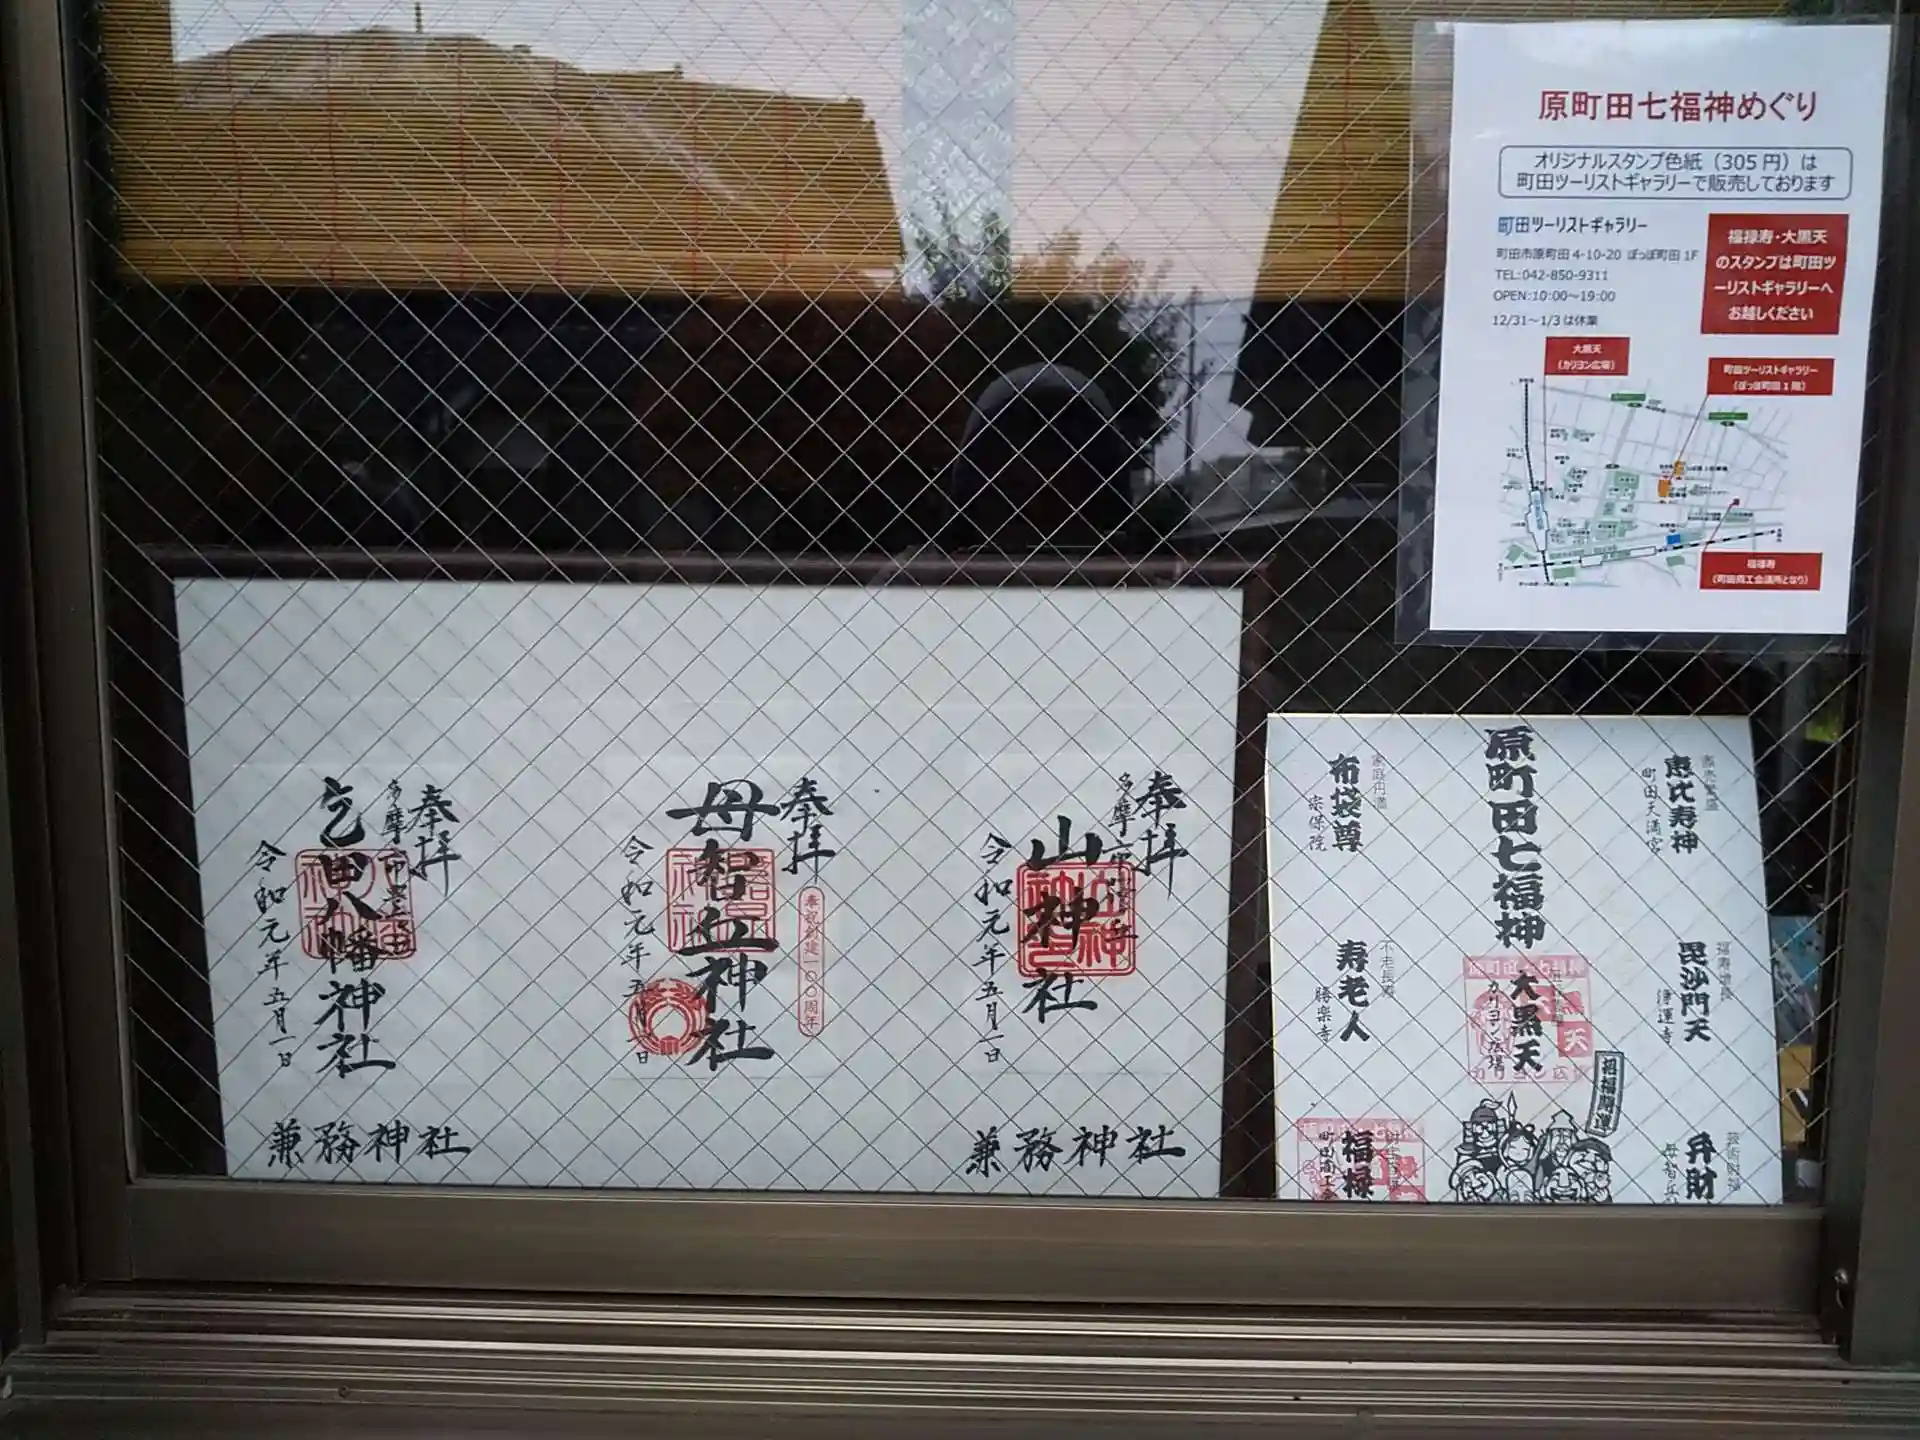 原町田七福神めぐり
オリジナルスタンプ色紙（305円）は
町田ツーリストギャラリーで販売しております
町田ツーリストギャラリー
町田市原町田 4-10-20 ぽっぽ町田 1F
TEL:042-850-9311
OPEN:10:00～19:00
12/31～1/3は休業
福禄寿・大黒天
のスタンプは町田ツ
ーリストギャラリーへ
お越しください
大黒天
（カリヨン広場）
町田ツーリストギャラリー
（ぽっぽ町田1階）
福禄寿
（町田商工会議所となり）
奉拝
山神社
令和元年五月一日
兼務神社
奉拝
奉祝創建一〇〇周年
母智丘神社
令和元年五月一日
奉拝
乞田八幡神社
令和元年五月一日
兼務神社
原町田七福神
商売繁盛
恵比寿神
町田天満宮
毘沙門天
家庭円満
布袋尊
宗保院
寿老人
勝楽寺
大黒天
カリヨン広場
招福開運
福禄
弁財